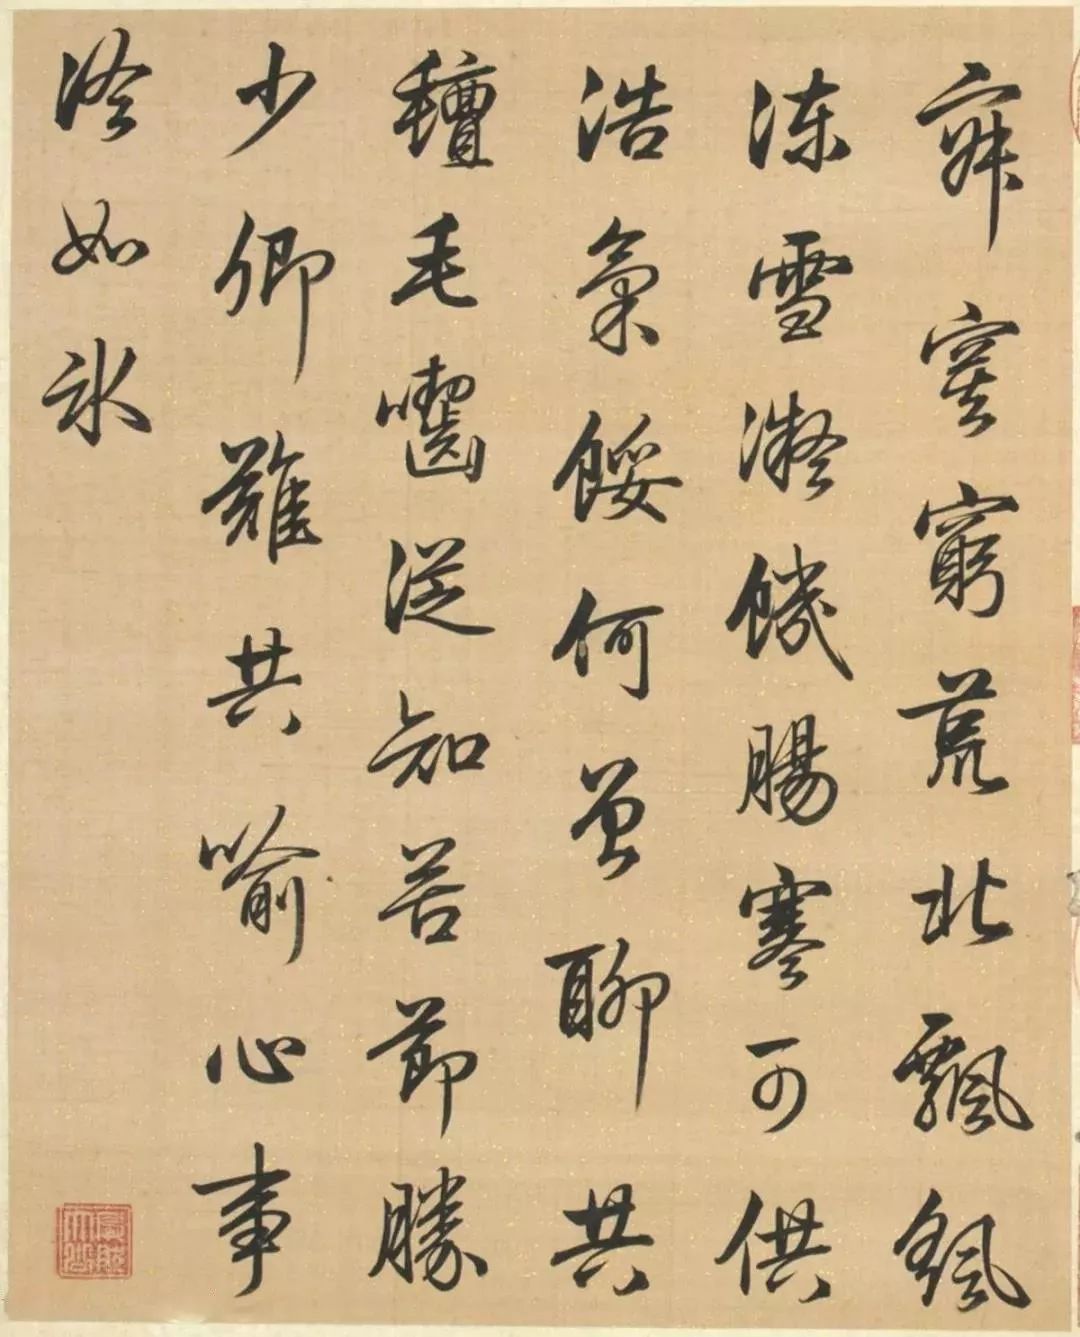 寂寞窮荒北飄颻
凍雪凝饑腸寒可供
浩氣餒何曾聊共
氊毛囓從知苦節勝
少卿難共喻心事
冷如冰